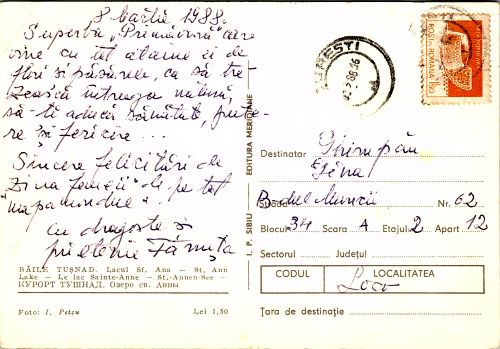 8 Martie 1988.
Superba „Primăvară" care
vine cu tot alaiul ei de
flori și păsărele, ca să tre-
zească întreaga natură,
să-ți aducă sănătate, pute-
re și fericire ...
Sincere felicitări de
"Ziua femeii" de pe tot
"mapamondul".
Cu dragoste și
prietenie
BĂILE TUȘNAD. Lacul Sf. Ana — St. Ann
Lake — Le lac Sainte-Anne — St.-Annen-See —
КУРОРТ ТУШНАД. Озеро св. Анны
Foto: I. Petcu
Lei 1,50
I. P. SIBIU
EDITURA MERIDIANE
POSTA ROMANA
Destinator Ghimpău
Strada Nr. 62
Blocul 34 Scara A Etajul 2 Apart 12
Sectorul Județul
CODUL
LOCALITATEA
Loco
Țara de destinație